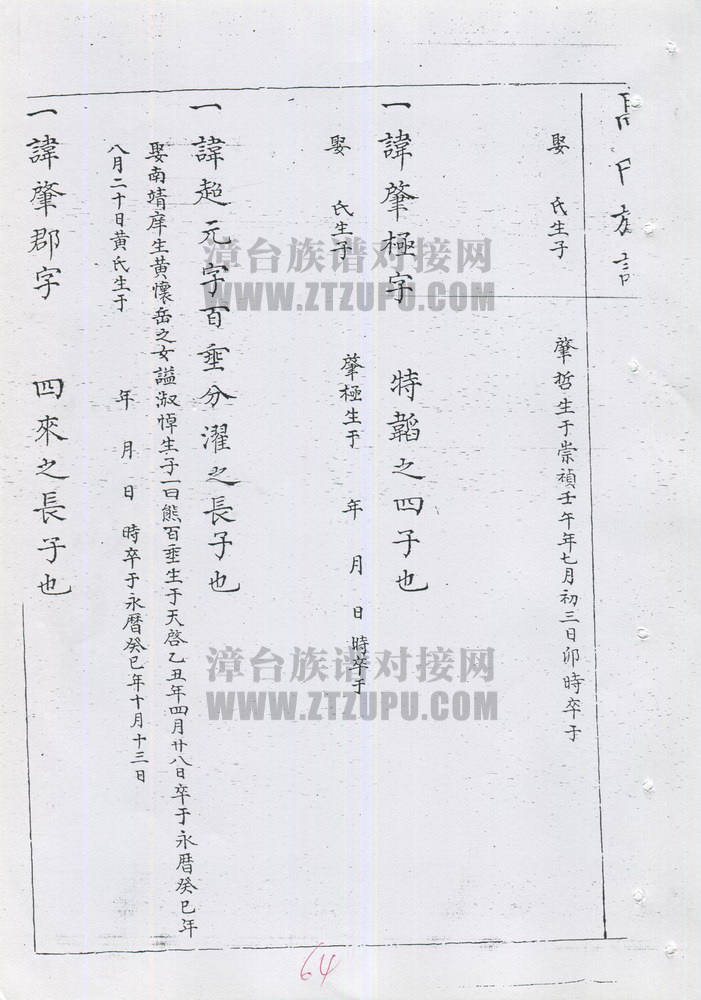 娶 氏生子 肇哲生于崇禎壬午年七月初三日卯時卒于
一諱肇極字 特韜之四子也
娶 氏生子 肇極生于 年 月 日 時卒于
一諱超元字百垂分濯之長子也
娶南靖庠生黃懷岳之女諡淑悼生子一曰熊百垂生于天啓乙丑年四月廿八日卒于永曆癸巳年
八月二十日黃氏生于 年 月 日 時卒于永曆癸巳年十月十三日
一諱肇郡字 四來之長子也
漳台族谱对接网
WWW.ZTZUPU.COM
漳台族谱对接网
WWW.ZTZUPU.COM
64